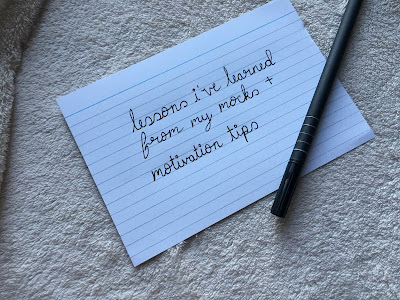 lessons i've learned
from my mocks +
motivation tips